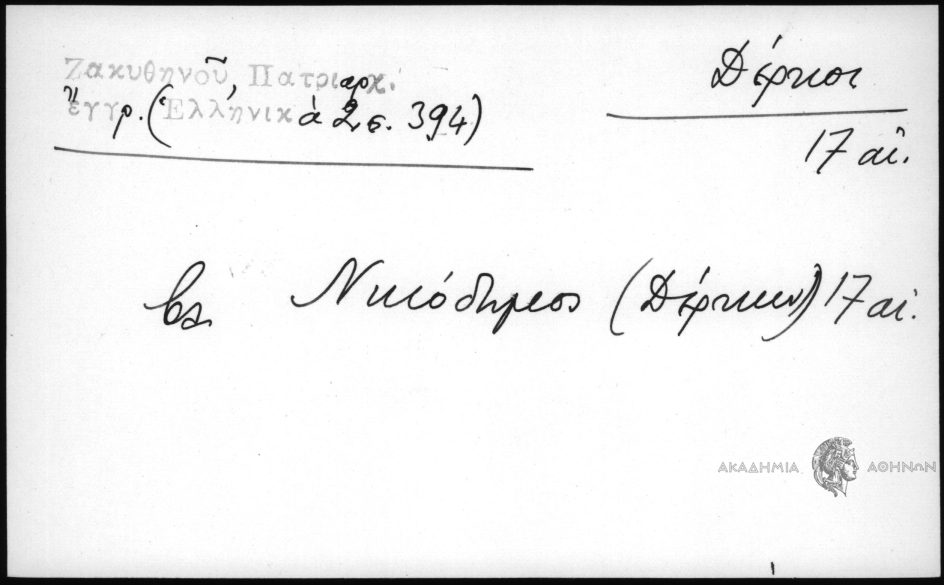 Ζακυθηνοῦ, Πατριαρχ.
ἔγγρ. (Ἑλληνικὰ 2 σ. 394)
Δέρκοι
17 αἰ.
βλ Νικόδημος (Δέρκων) 17 αἰ.
ΑΚΑΔΗΜΙΑ ΑΘΗΝΩΝ